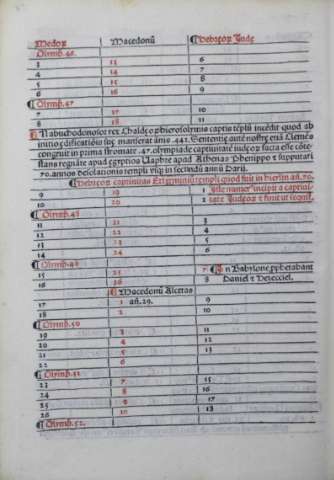 Medoꝝ Macedonū Hebreoꝝ Iude
Olimb.46.
3 13 6
4 14 7
5 15 8
6 16 9
Olimb.47
7 17 10
8 18 11
Nabuchodonosor rex Chaldeoꝝ hierosolymis captis templū incēdit quod ab
initio edificatiōis suę manserat annis .442. Sententię autē nostrę etiā Clemēs
congruit in primo stromate .47. olympiade captiuitatē iudeoꝝ facta esse cōte-
stans regnāte apud egyptios Uaphre apud Athenas Phenippo & supputari
.70. annos desolationis templi vsq; in secundū annū Darii.
Hebreoꝝ captiuitas templi quod fuit in hierlm añ.70.
9 19 1 Iste numerꝰ incipit a captiui-
10 20 2 tate
Olimb.48
11 21 3
12 22 4
13 23 5
14 24 6
Olimb.49
15 25 7 In Babylone prophetabant
16 26 8 Daniel & Ezecciel.
Macedonū Alcetas
17 1 añ.29. 9
18 2 10
Olimb.50
19 3 11
20 4 12
21 5 13
22 6 14
Olimb.51
23 7 15
24 8 16
25 9 17
26 10 18
Olimb.52.